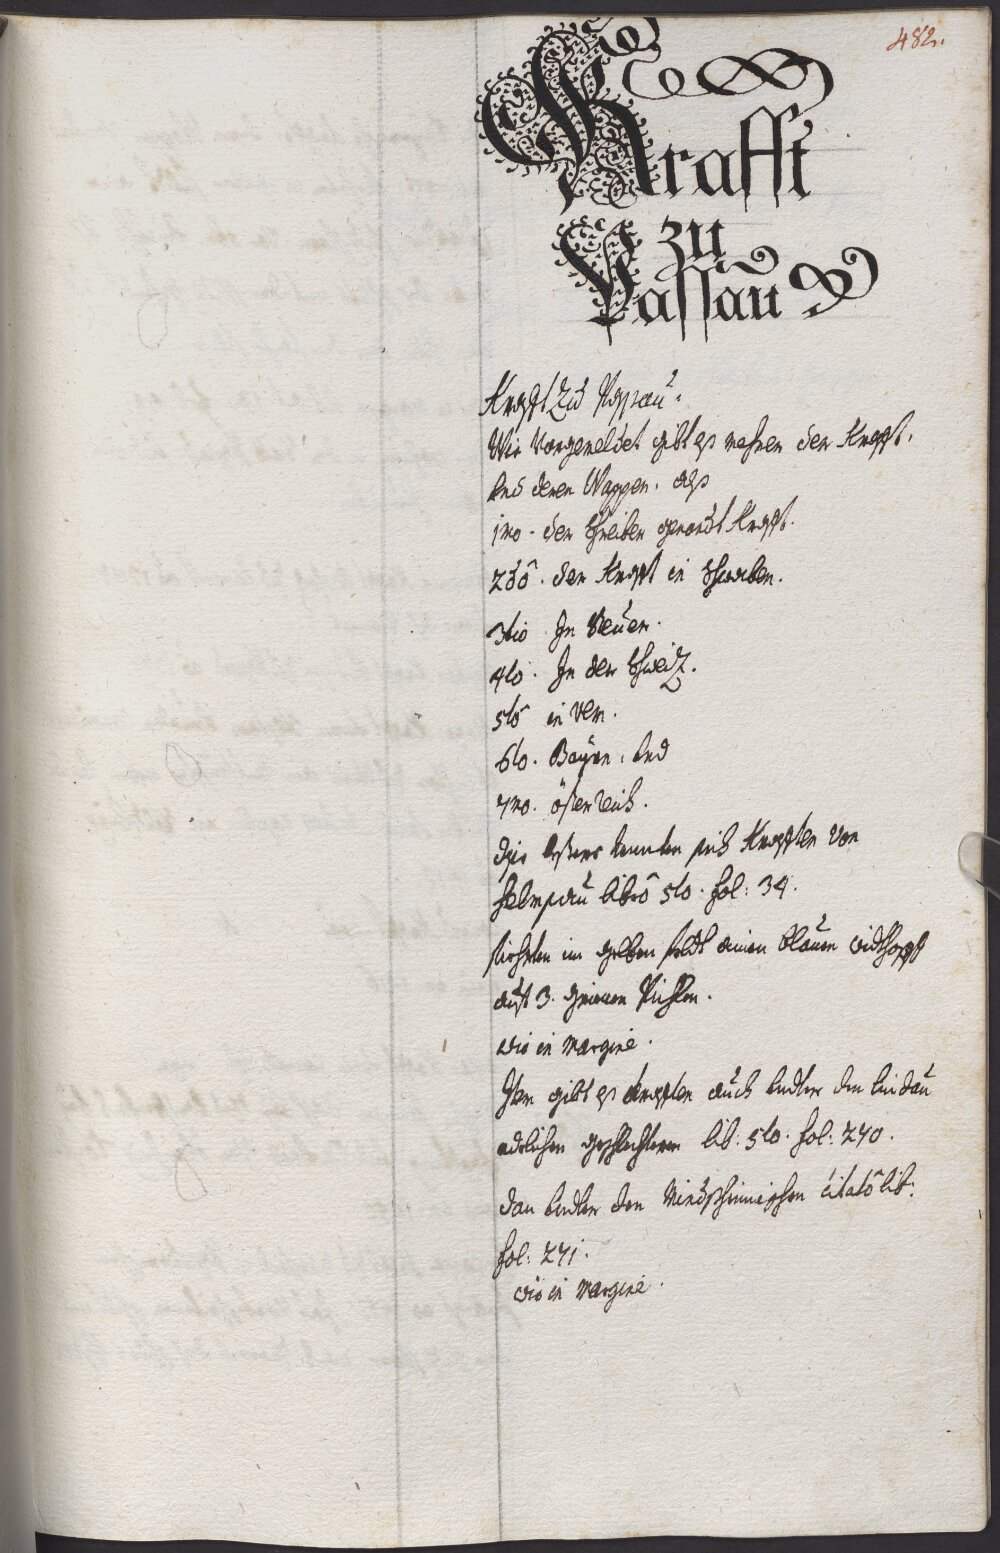 482.
Krafft
zu
Passau
Krafft Zu Passau.
Wie Vorgemeldet gibt es mehrer der Krafft,
und deren Wappen. als
1mo. der Schreiber genandt Krafft.
2dô. der Krafft in Schwaben.
3tio In
4to. In der Schweitz.
5tô in Ulm.
6to. Bayrn, und
7mo. österreich.
dise lestere nennten sich Krafften von
Helmsau librô 5to. fol: 34.
fiehrten im gelben feldt ainen blauen widthopff
auf 3. grienen Pichlen.
wie in margine.
Item gibt es Krafften auch under den lindau
adelichen geschlechtern lib: 5to. fol: 270.
dan under den citatô lib:
fol: 271.
wie in margine.